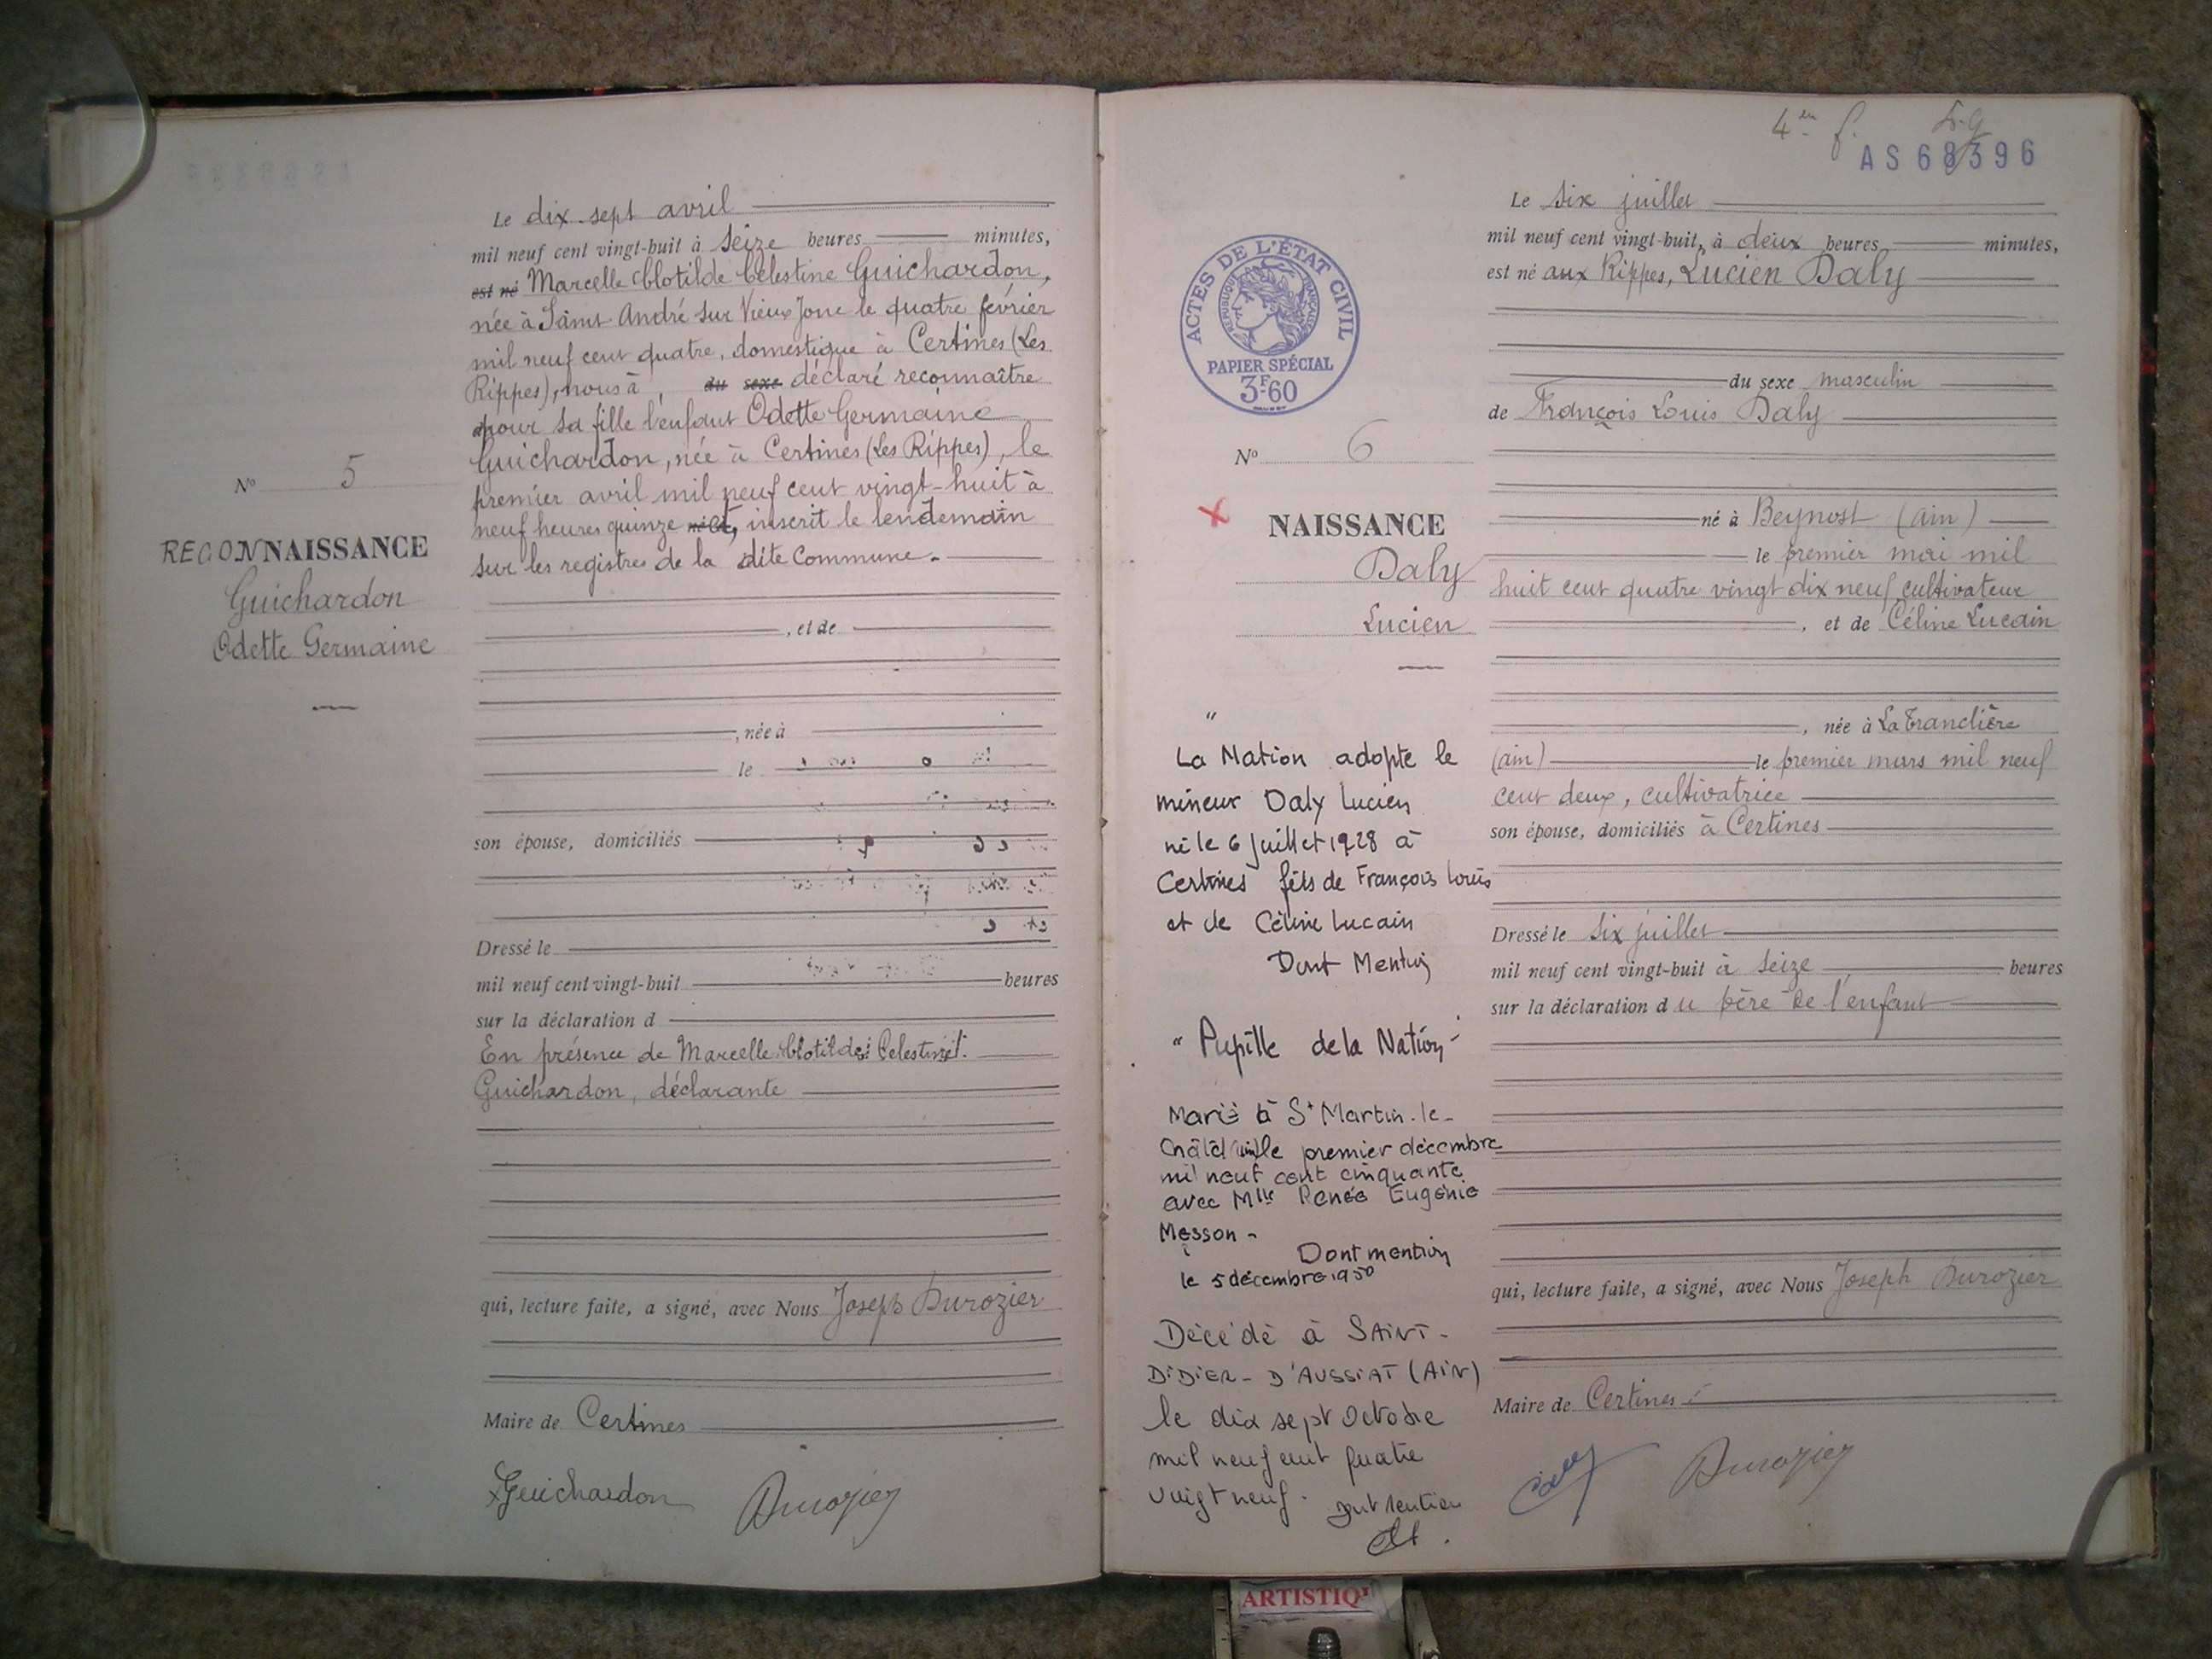 Le dix sept avril
mil neuf cent vingt-huit à seize heures minutes,
est né Marcelle Clotilde Célestine Guichardon,
née à Saint André sur Vieux Jonc le quatre février
mil neuf cent quatre, domestique à Certines (Les
Rippes), nous à, du sexe déclaré reconnaître
pour sa fille l'enfant Odette Germaine
Guichardon, née à Certines (Les Rippes), le
premier avril mil neuf cent vingt-huit à
neuf heures quinze inscrit le lendemain
sur les registres de la dite Commune.
N° 5
RECONNAISSANCE
Guichardon
Odette Germaine
, et de
, née à
le
son épouse, domiciliés
Dressé le
mil neuf cent vingt-huit heures
sur la déclaration d
En présence de Marcelle Clotilde Celestine
Guichardon, déclarante
qui, lecture faite, a signé, avec Nous Joseph Durozier
Maire de Certines
Guichardon Durozier
4 en f.
AS 68396
ACTES DE L'ÉTAT CIVIL
RÉPUBLIQUE FRANÇAISE
PAPIER SPÉCIAL
3F60
N° 6
NAISSANCE
Daly
Lucien
"
La Nation adopte le
mineur Daly Lucien
né le 6 juillet 1928 à
Certines fils de François Louis
et de Céline Lucain
Dont Mention
"Pupille de la Nation"
Marié à St Martin-le-
Châtel (Ain) le premier décembre
mil neuf cent cinquante
avec Mlle Renée Eugénie
Messon -
Dont mention
le 5 décembre 1950
Décédé à SAINT-
DIDIER-D'AUSSIAT (AIN)
le dix sept Octobre
mil neuf cent quatre
vingt neuf. dont mention
Le six juillet
mil neuf cent vingt-huit, à deux heures minutes,
est né aux Rippes, Lucien Daly
du sexe masculin
de François Louis Daly
né à Beynost (Ain)
le premier mai mil
huit cent quatre vingt dix neuf cultivateur
, et de Céline Lucain
, née à La Tranclière
(ain) le premier mars mil neuf
cent deux, cultivatrice
son épouse, domiciliés à Certines
Dressé le six juillet
mil neuf cent vingt-huit à seize heures
sur la déclaration du père de l'enfant
qui, lecture faite, a signé, avec Nous Joseph Durozier
Maire de Certines
Daly Durozier
ARTISTIQ